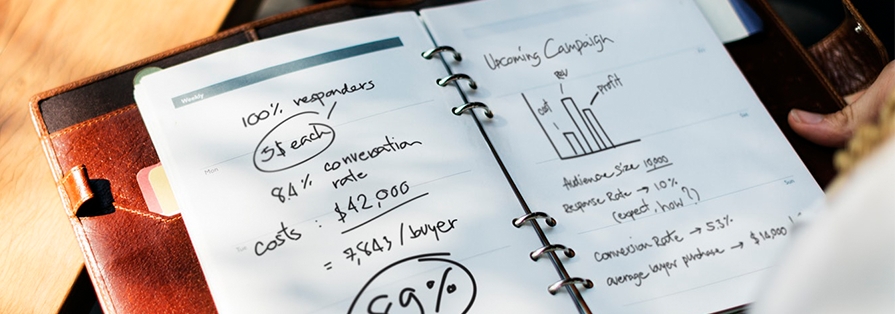 Weekly
100% responders
5$ each
8.4% conversation
rate
costs : $42,000
= 7,843/buyer
89%
Upcoming Campaign
cost
REV
profit
Audience Size 10,000
Response Rate → 10%
(expect, how?)
conversion Rate → 5.3%
average buyer purchase → $14,000
Mon
Tue
Sat
Sun